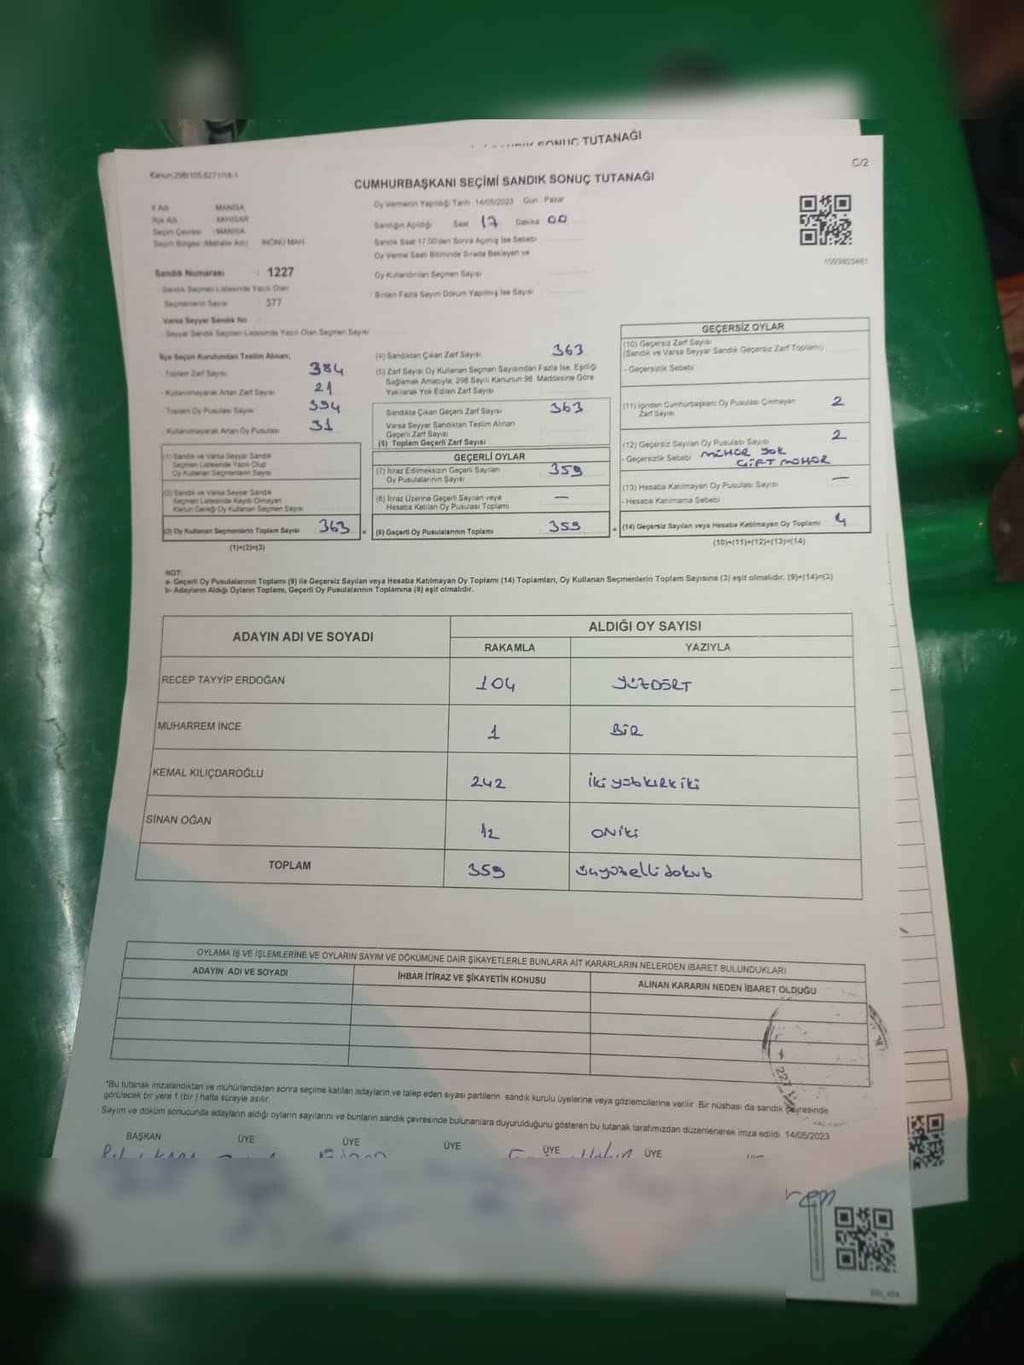 SONUÇ TUTANAĞI
Kanun:298/105,6271/18.1
C/2
CUMHURBAŞKANI SEÇİMİ SANDIK SONUÇ TUTANAĞI
İl Adı MANİSA
İlçe Adı AKHİSAR
Seçim Çevresi : MANİSA
Seçim Bölgesi (Mahalle Adı) İNÖNÜ MAH.
Oy Vermenin Yapıldığı Tarih : 14/05/2023 Gün : Pazar
Sandığın Açıldığı Saat 17 Dakika 00
Sandık Saat 17:00'den Sonra Açılmış İse Sebebi
Oy Verme Saati Bitiminde Sırada Bekleyen ve
Oy Kullandırılan Seçmen Sayısı
Birden Fazla Sayım Döküm Yapılmış İse Sayısı
Sandık Numarası : 1227
Sandık Seçmen Listesinde Yazılı Olan
Seçmenlerin Sayısı 377
Varsa Seyyar Sandık No
- Seyyar Sandık Seçmen Listesinde Yazılı Olan Seçmen Sayısı
İlçe Seçim Kurulundan Teslim Alınan;
- Toplam Zarf Sayısı 384
- Kullanılmayarak Artan Zarf Sayısı 21
Toplam Oy Pusulası Sayısı 394
- Kullanılmayarak Artan Oy Pusulası 31
(1) Sandık ve Varsa Seyyar Sandık
Seçmen Listesinde Yazılı Olup
Oy Kullanan Seçmenlerin Sayısı
(2) Sandık ve Varsa Seyyar Sandık
Seçmen Listesinde Kaydı Olmayan
Kanun Gereği Oy Kullanan Seçmen Sayısı
(3) Oy Kullanan Seçmenlerin Toplam Sayısı 363
(1)+(2)=(3)
(4) Sandıktan Çıkan Zarf Sayısı 363
(5) Zarf Sayısı Oy Kullanan Seçmen Sayısından Fazla İse, Eşitliği
Sağlamak Amacıyla, 298 Sayılı Kanunun 98. Maddesine Göre
Yakılarak Yok Edilen Zarf Sayısı
Sandıkta Çıkan Geçerli Zarf Sayısı 363
Varsa Seyyar Sandıktan Teslim Alınan
Geçerli Zarf Sayısı
(6) Toplam Geçerli Zarf Sayısı
GEÇERLİ OYLAR
(7) İtiraz Edilmeksizin Geçerli Sayılan
Oy Pusulalarının Sayısı 359
(8) İtiraz Üzerine Geçerli Sayılan veya
Hesaba Katılan Oy Pusulası Toplamı —
(9) Geçerli Oy Pusulalarının Toplamı 359
GEÇERSİZ OYLAR
(10) Geçersiz Zarf Sayısı
(Sandık ve Varsa Seyyar Sandık Geçersiz Zarf Toplamı)
- Geçersizlik Sebebi
(11) İçinden Cumhurbaşkanı Oy Pusulası Çıkmayan
Zarf Sayısı 2
(12) Geçersiz Sayılan Oy Pusulası Sayısı 2
- Geçersizlik Sebebi MÜHÜR YOK
ÇİFT MÜHÜR
(13) Hesaba Katılmayan Oy Pusulası Sayısı —
- Hesaba Katılmama Sebebi
(14) Geçersiz Sayılan veya Hesaba Katılmayan Oy Toplamı 4
(10)+(11)+(12)+(13)=(14)
NOT:
a- Geçerli Oy Pusulalarının Toplamı (9) ile Geçersiz Sayılan veya Hesaba Katılmayan Oy Toplamı (14) Toplamları, Oy Kullanan Seçmenlerin Toplam Sayısına (3) eşit olmalıdır. (9)+(14)=(3)
b- Adayların Aldığı Oyların Toplamı, Geçerli Oy Pusulalarının Toplamına (9) eşit olmalıdır.
ADAYIN ADI VE SOYADI ALDIĞI OY SAYISI
RAKAMLA YAZIYLA
RECEP TAYYİP ERDOĞAN 104 YÜZDÖRT
MUHARREM İNCE 1 BİR
KEMAL KILIÇDAROĞLU 242 ikiyüzkırkiki
SİNAN OĞAN 12 ONiki
TOPLAM 359 üçyüzellidokuz
OYLAMA İŞ VE İŞLEMLERİNE VE OYLARIN SAYIM VE DÖKÜMÜNE DAİR ŞİKAYETLERLE BUNLARA AİT KARARLARIN NELERDEN İBARET BULUNDUKLARI
ADAYIN ADI VE SOYADI İHBAR İTİRAZ VE ŞİKAYETİN KONUSU ALINAN KARARIN NEDEN İBARET OLDUĞU
*Bu tutanak imzalandıktan ve mühürlendikten sonra seçime katılan adayların ve talep eden siyasi partilerin sandık kurulu üyelerine veya gözlemcilerine verilir. Bir nüshası da sandık çevresinde
görülecek bir yere 1 (bir ) hafta süreyle asılır.
Sayım ve döküm sonucunda adayların aldığı oyların sayılarını ve bunların sandık çevresinde bulunanlara duyurulduğunu gösteren bu tutanak tarafımızdan düzenlenerek imza edildi. 14/05/2023
BAŞKAN ÜYE ÜYE ÜYE ÜYE ÜYE